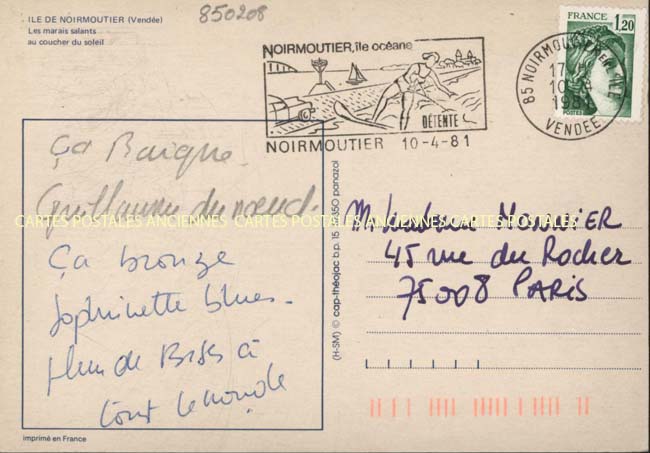 ILE DE NOIRMOUTIER (Vendée)
Les marais salants
au coucher du soleil
850208
NOIRMOUTIER, île océane
DÉTENTE
NOIRMOUTIER 10-4-81
FRANCE
1,20
POSTES
85 NOIRMOUTIER EN L'ILE
17
10-4
1981
VENDEE
Ça Baigne.
Guillaume du nœud.
Ça bronze
Sophinette blues.
Plein de Bises à
tout le monde
CARTES POSTALES ANCIENNES CARTES POSTALES ANCIENNES CARTES POSTALES ANCIENNES
M.
45 rue du Rocher
75008 PARIS
(H-SM) © cap-théojac b.p. 15 panazol
imprimé en France